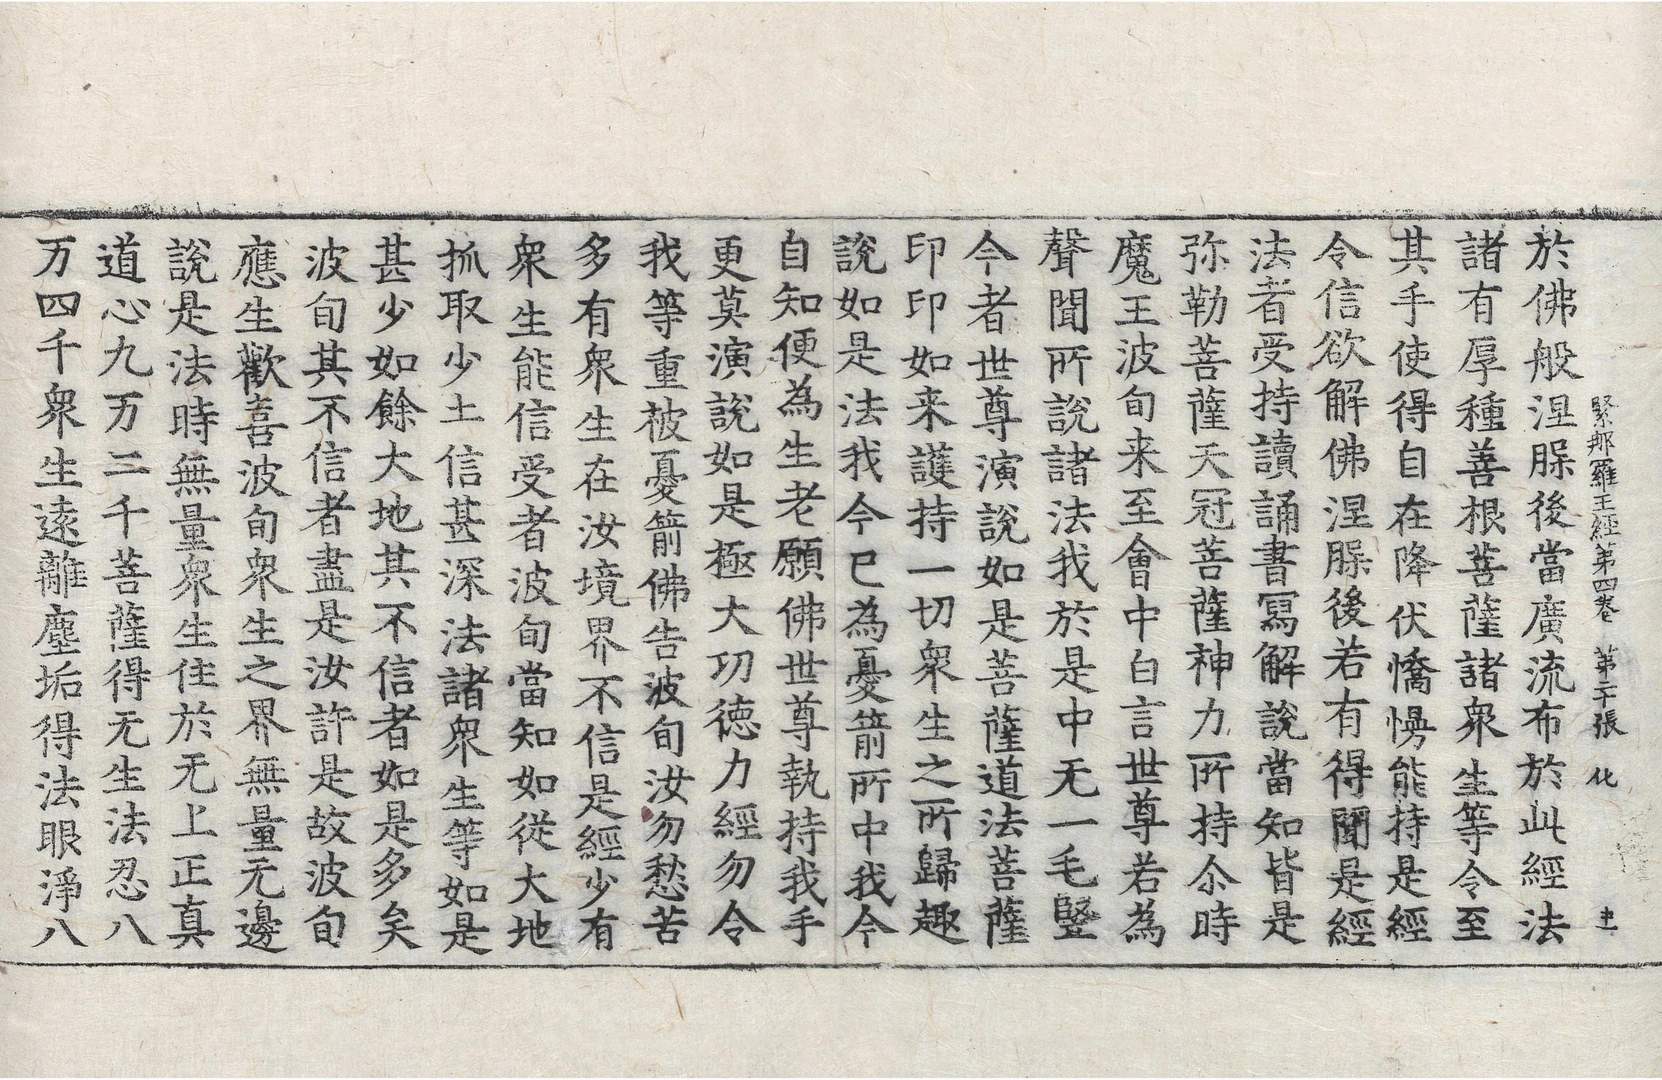 緊那羅王經第四卷 第二十張 化
於佛般涅脲後當廣流布於此經法
諸有厚種善根菩薩諸衆生等令至
其手使得自在降伏憍慢能持是經
令信欲解佛涅脲後若有得聞是經
法者受持讀誦書寫解說當知皆是
弥勒菩薩天冠菩薩神力所持尒時
魔王波旬来至會中白言世尊若為
聲聞所說諸法我於是中无一毛竪
今者世尊演說如是菩薩道法菩薩
印印如来護持一切衆生之所歸趣
說如是法我今已為憂箭所中我今
自知便為生老願佛世尊執持我手
更莫演說如是極大㓛德力經勿令
我等重被憂箭佛告波旬汝勿愁苦
多有衆生在汝境界不信是經少有
衆生能信受者波旬當知如從大地
抓取少土信甚深法諸衆生等如是
甚少如餘大地其不信者如是多矣
波旬其不信者盡是汝許是故波旬
應生歡喜波旬衆生之界無量无邊
說是法時無量衆生住於无上正真
道心九万二千菩薩得无生法忍八
万四千衆生遠離塵垢得法眼淨八